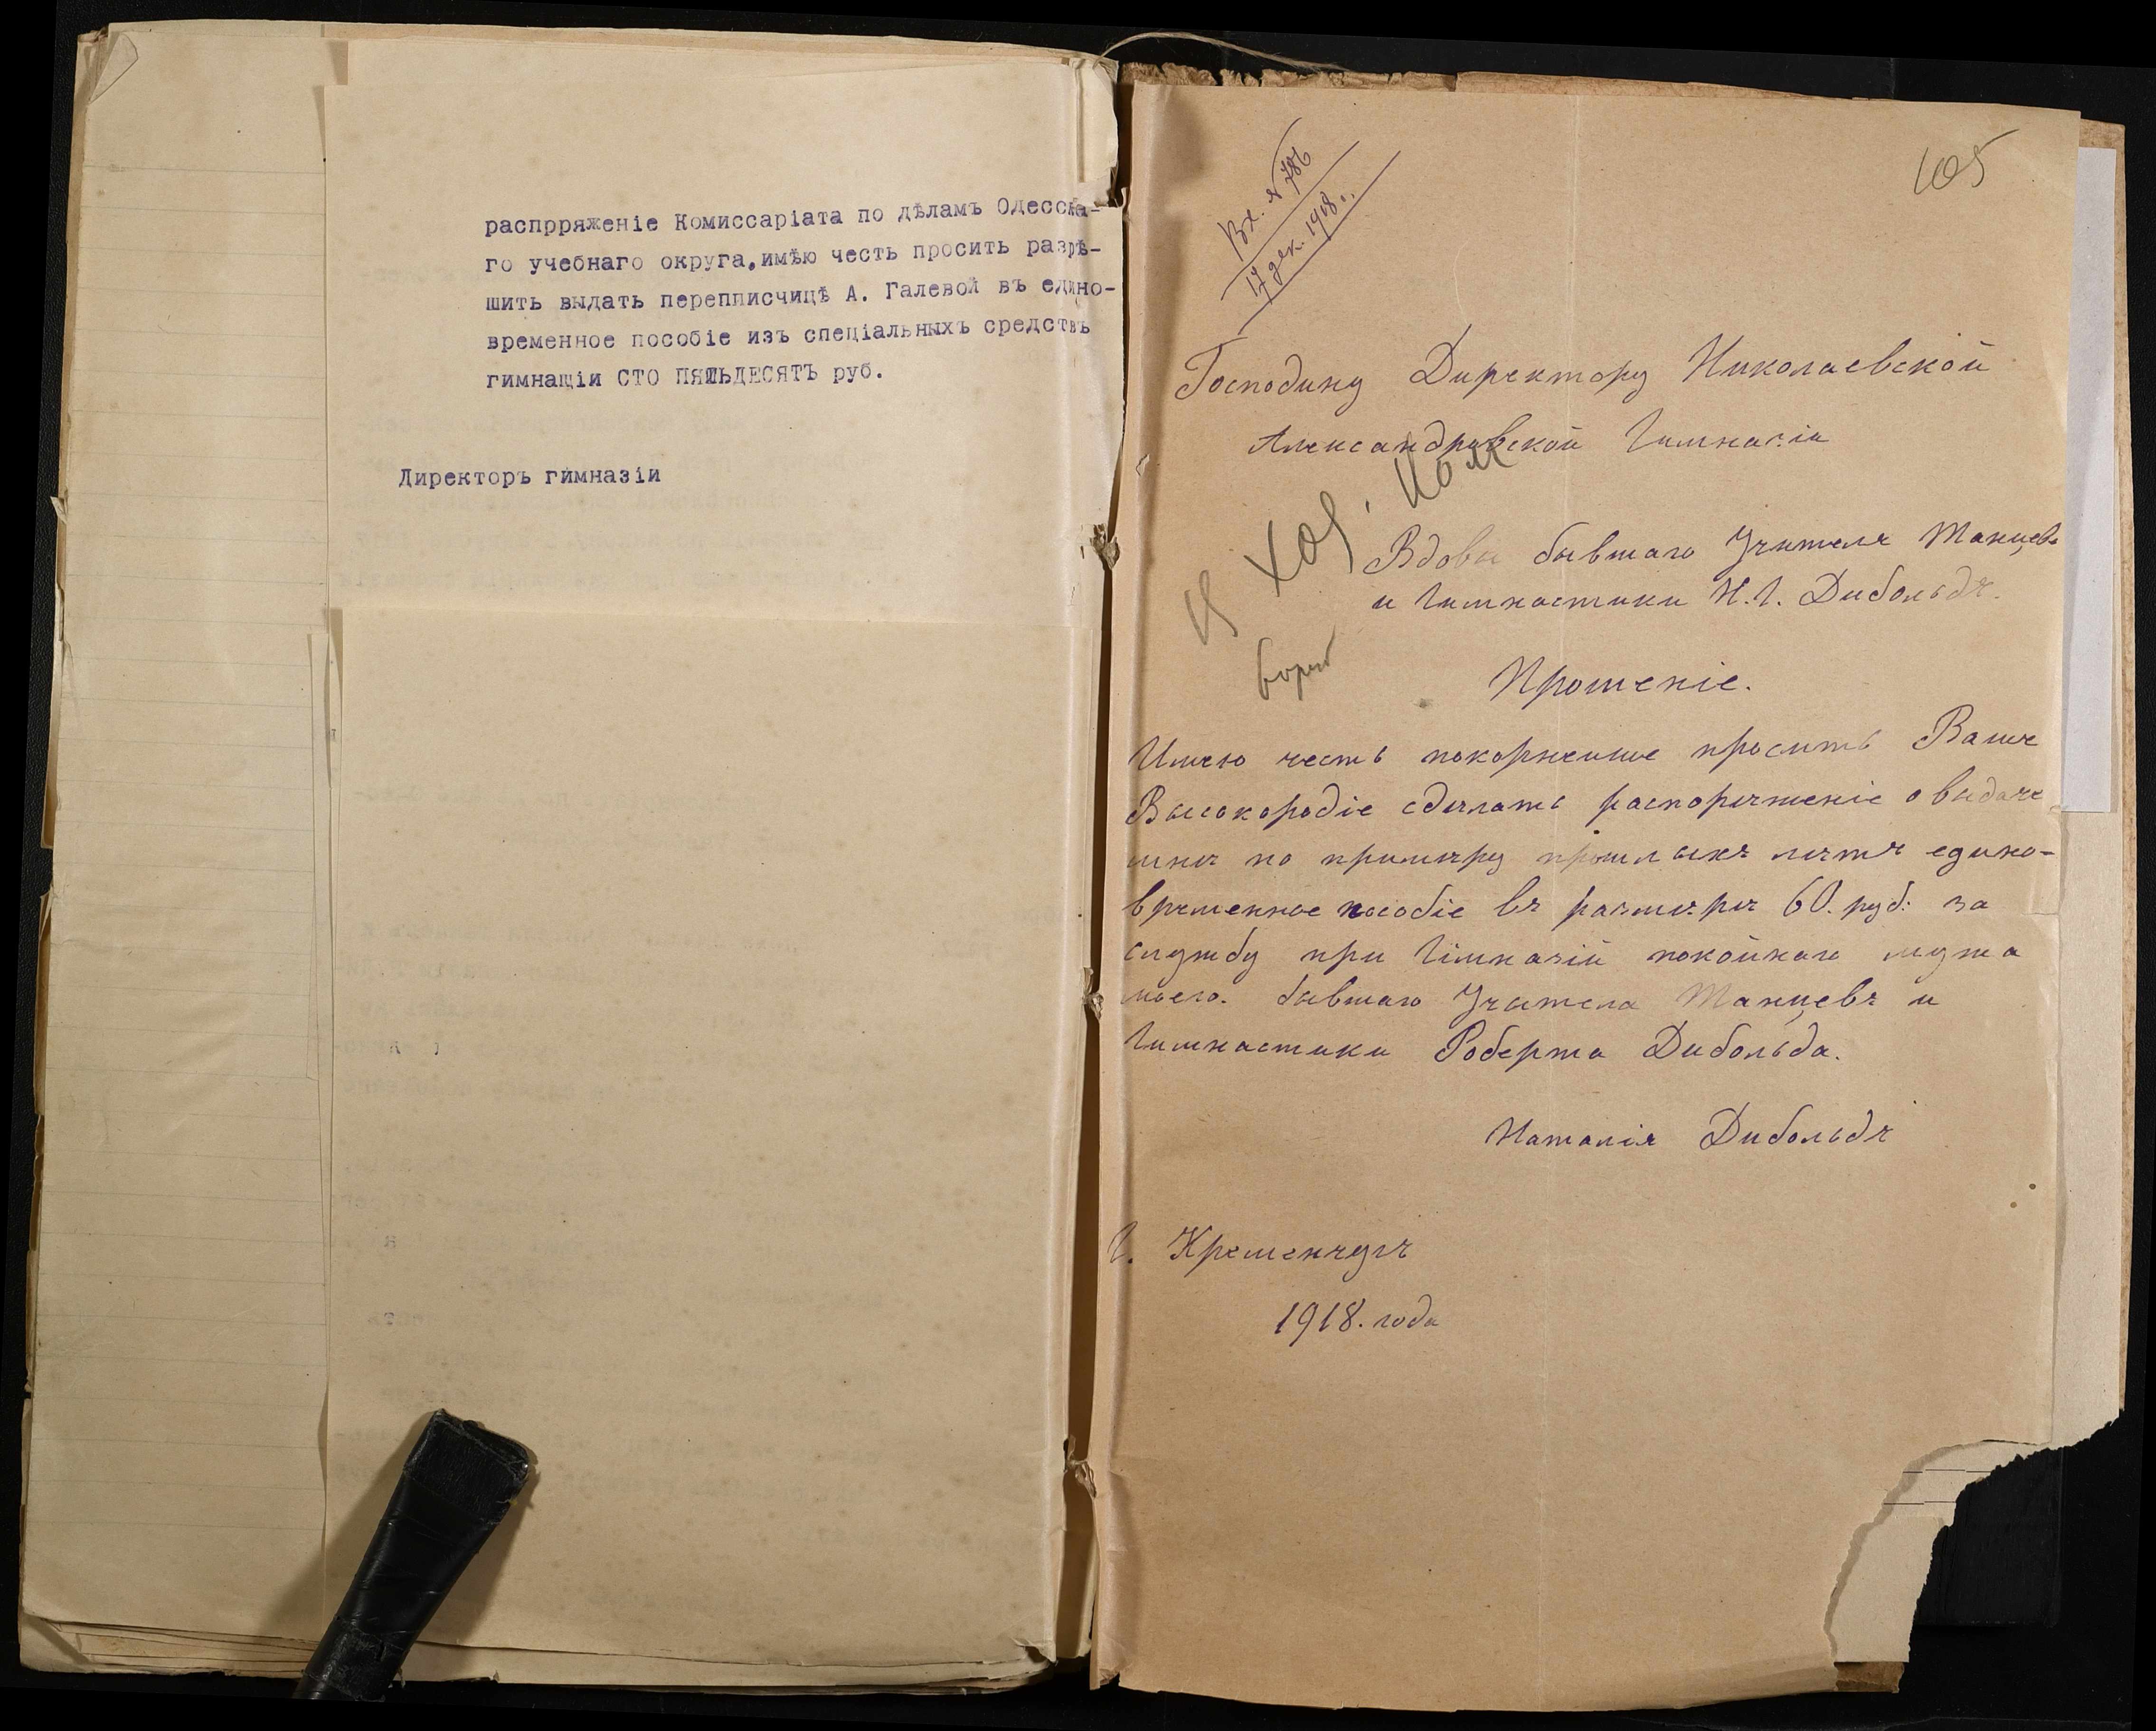 распрряженіе Комиссаріата по дѣламъ Одесска-
го учебнаго округа,имѣю честь просить разрѣ-
шить выдать переписчицѣ А. Галевой въ едино-
временное пособіе изъ спеціальныхъ средствъ
гимнащіи СТО ПЯТЬДЕСЯТЪ руб.
Директоръ гимназіи
105
Вх. № 786
17 дек. 1918 г.
Господину Директору Николаевской
Александровской Гимназіи
Вдовы бывшаго Учителя Танцевъ
и Гимнастики Н.Г. Дибольдъ.
Прошеніе.
Имею честь покорнейше просить Ваше
Высокородіе сдѣлать распоряженіе о выдаче
мнѣ по примѣру прошлыхъ лѣтъ едино-
временное пособіе въ размѣрѣ 60. руб: за
службу при Гімназій покойнаго мужа
моего. бывшаго Учителя Танцевъ и
Гимнастики Роберта Дибольда.
Наталія Дибольдъ
Г. Кременчугъ
1918. года